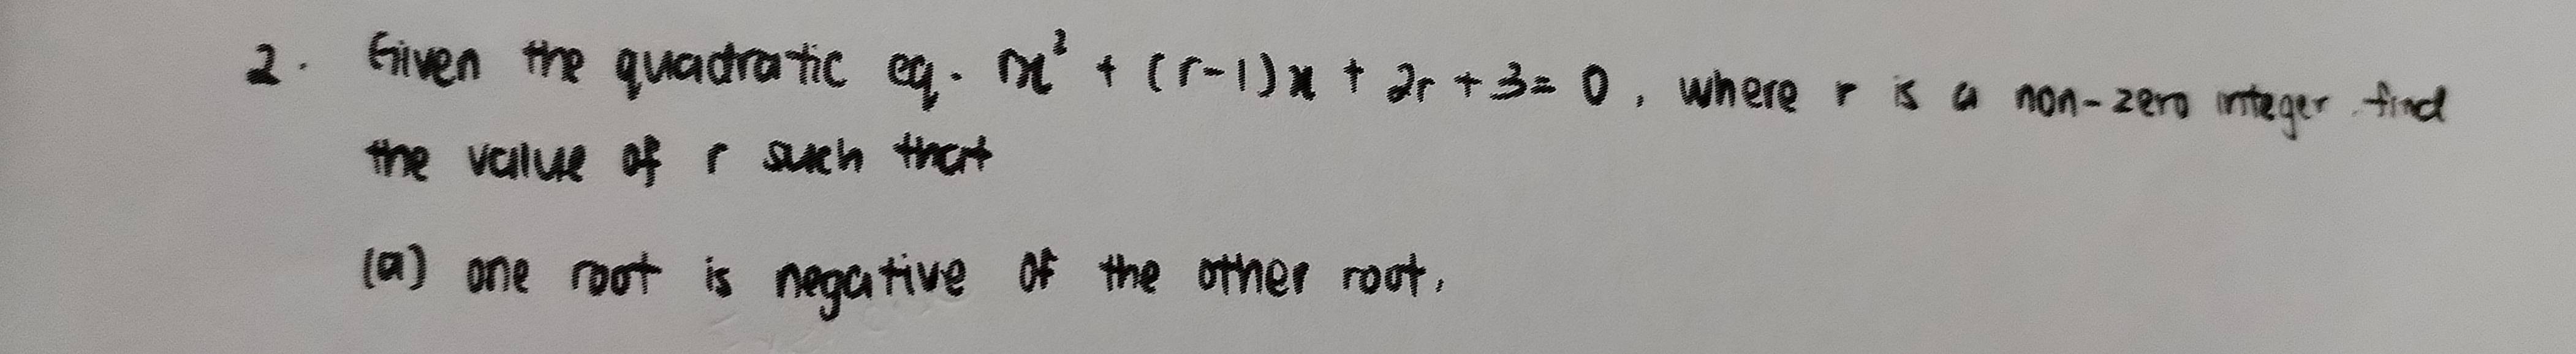 2. Given the quadratic eq. rx² + (r-1)x + 2r + 3 = 0, where r is a non-zero integer. find
the value of r such that
(a) one root is negative of the other root.